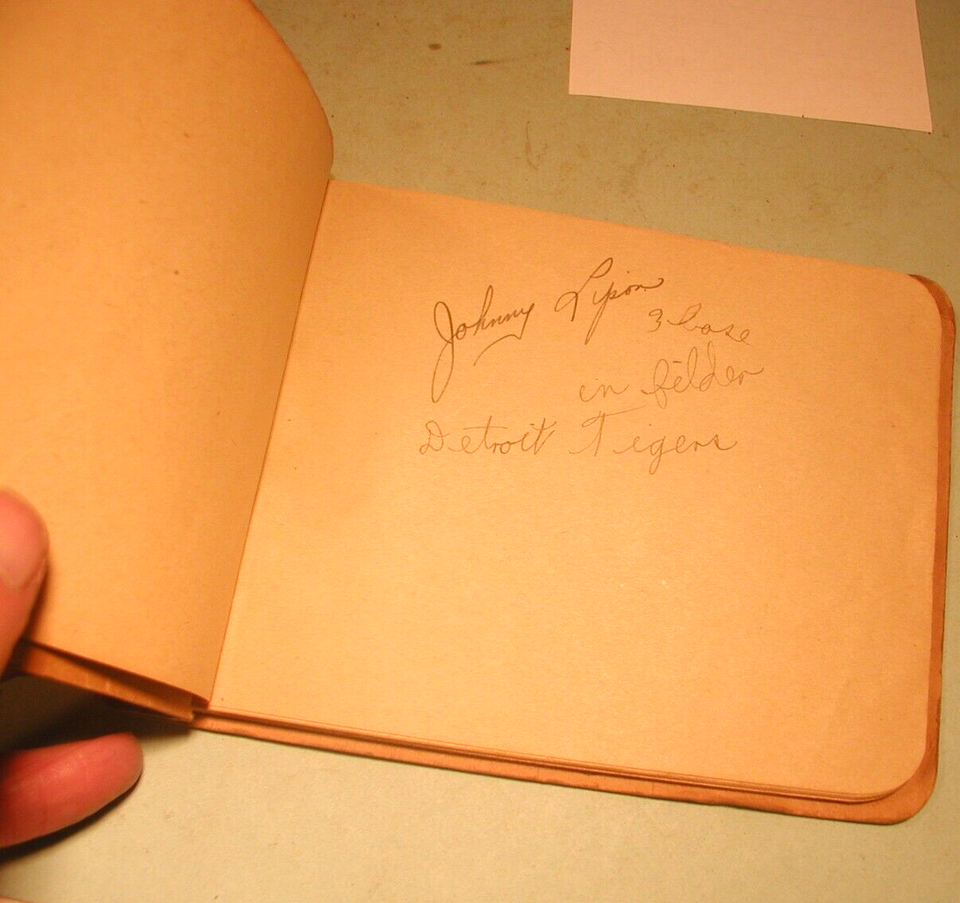 Johnny Lipon
3 base
in filder
Detroit Tigers